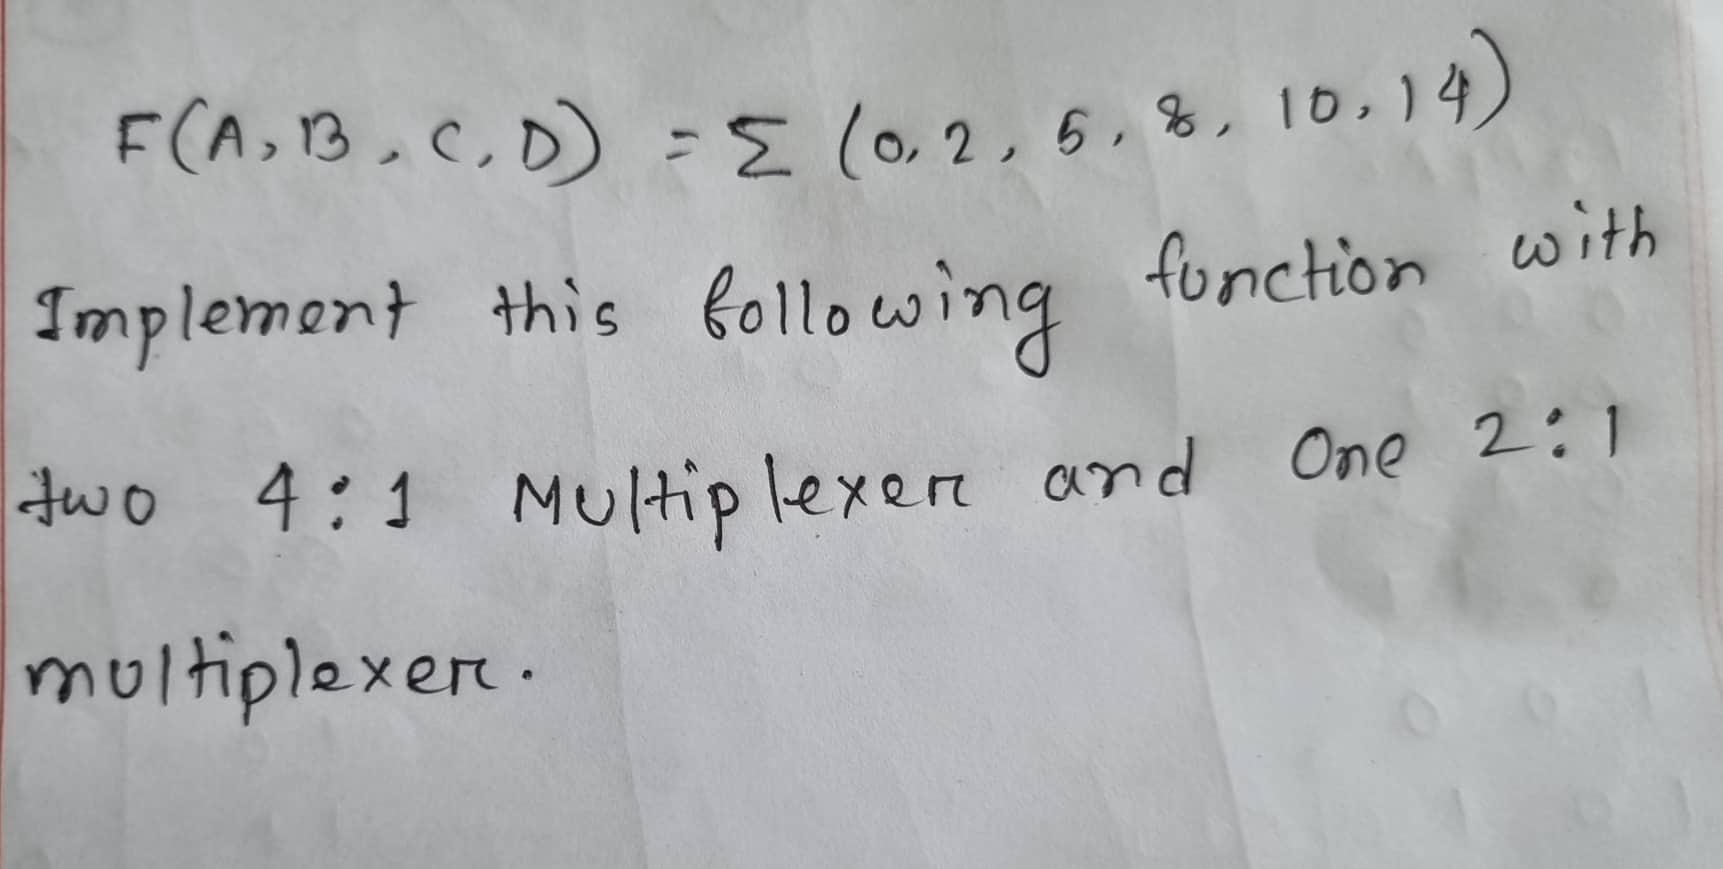 F(A,B,C,D) = Σ (0,2,5,8,10,14)
Implement this following function with
two 4:1 Multiplexer and One 2:1
multiplexer.